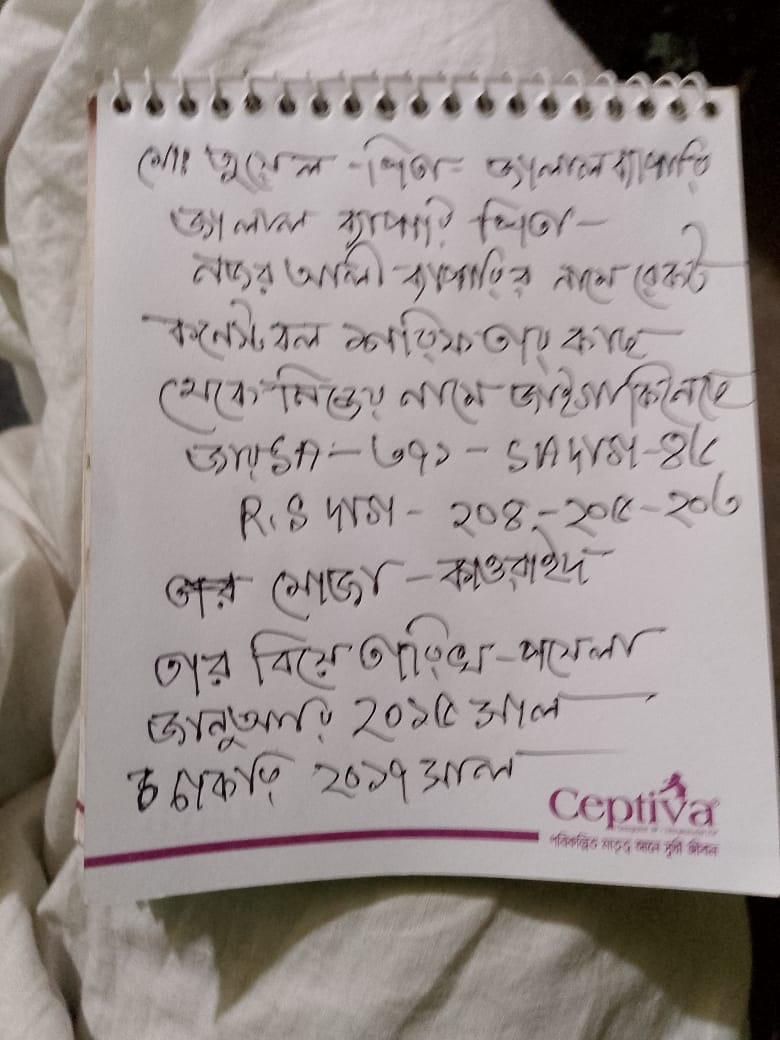 মোঃ জুয়েল - পিতা - জালাল ব্যাপারি
জালাল ব্যাপারি পিতা -
নজর আলী ব্যাপারির নামে রেকর্ট
কনেস্টবল তার কাছে
থেকে নিজের নামে জাইগা কিনেছে
SA - ৩৭১ - SA দাগ - ৪৫
R.S দাগ - ২০৪ - ২০৫ - ২০৬
তার মৌজা - কাওরাইদ
তার বিয়ে তারিখ - পয়েলা
জানুআরি ২০১৫ সাল
চাকরি ২০১৭ সাল
Ceptiva
পরিকল্পিত মাতৃত্ব আনে সুখী জীবন